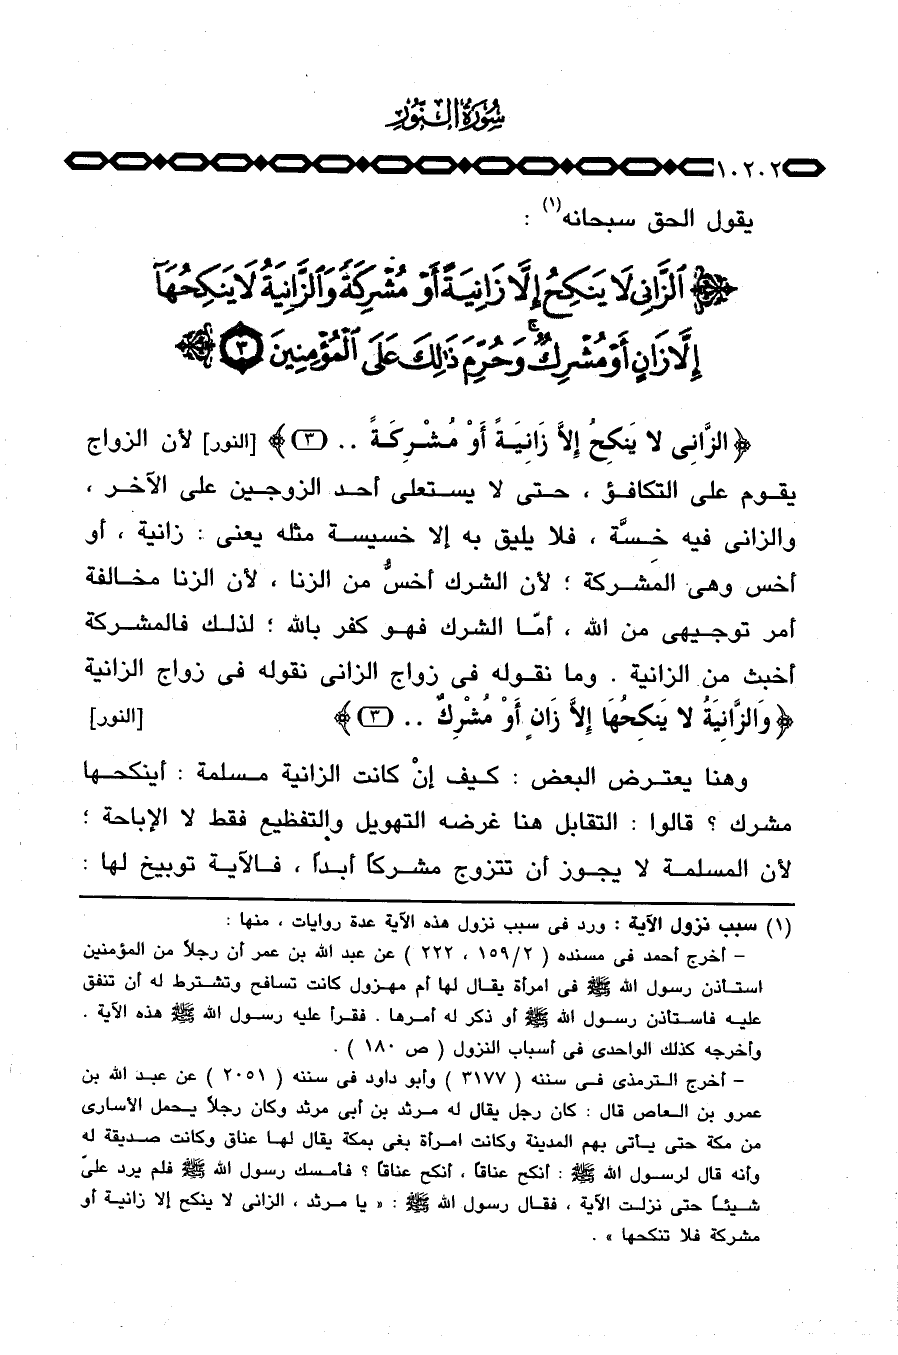 سورة النور
١٠٢٠٢
يقول الحق سبحانه(١) :
ٱلزَّانِى لَا يَنكِحُ إِلَّا زَانِيَةً أَوْ مُشْرِكَةً وَٱلزَّانِيَةُ لَا يَنكِحُهَآ
إِلَّا زَانٍ أَوْ مُشْرِكٌ ۚ وَحُرِّمَ ذَٰلِكَ عَلَى ٱلْمُؤْمِنِينَ ٣
﴿ الزَّانِى لا يَنكِحُ إِلاَّ زَانِيَةً أَوْ مُشْرِكَةً .. (٣) ﴾ [النور] لأن الزواج
يقوم على التكافؤ ، حتى لا يستعلى أحد الزوجين على الآخر ،
والزانى فيه خسَّة ، فلا يليق به إلا خسيسة مثله يعنى : زانية ، أو
أخس وهى المشركة ؛ لأن الشرك أخسُّ من الزنا ، لأن الزنا مخالفة
أمر توجيهى من الله ، أمّا الشرك فهو كفر بالله ؛ لذلك فالمشركة
أخبث من الزانية . وما نقوله فى زواج الزانى نقوله فى زواج الزانية
﴿ وَالزَّانِيَةُ لا يَنكِحُهَا إِلاَّ زَانٍ أَوْ مُشْرِكٌ .. (٣) ﴾ [النور]
وهنا يعترض البعض : كيف إنْ كانت الزانية مسلمة : أينكحها
مشرك ؟ قالوا : التقابل هنا غرضه التهويل والتفظيع فقط لا الإباحة ؛
لأن المسلمة لا يجوز أن تتزوج مشركاً أبداً ، فالآية توبيخ لها :
(١) سبب نزول الآية : ورد فى سبب نزول هذه الآية عدة روايات ، منها :
– أخرج أحمد فى مسنده ( ١٥٩/٢ ، ٢٢٢ ) عن عبد الله بن عمر أن رجلاً من المؤمنين
استأذن رسول الله ﷺ فى امرأة يقال لها أم مهزول كانت تسافح وتشترط له أن تنفق
عليه فاستأذن رسول الله ﷺ أو ذكر له أمرها . فقرأ عليه رسول الله ﷺ هذه الآية .
وأخرجه كذلك الواحدى فى أسباب النزول ( ص ١٨٠ ) .
– أخرج الترمذى فى سننه ( ٣١٧٧ ) وأبو داود فى سننه ( ٢٠٥١ ) عن عبد الله بن
عمرو بن العاص قال : كان رجل يقال له مرثد بن أبى مرثد وكان رجلاً يحمل الأسارى
من مكة حتى يأتى بهم المدينة وكانت امرأة بغى بمكة يقال لها عناق وكانت صديقة له
وأنه قال لرسول الله ﷺ : أنكح عناقاً ، أنكح عناقاً ؟ فأمسك رسول الله ﷺ فلم يرد علىّ
شيئاً حتى نزلت الآية ، فقال رسول الله ﷺ : « يا مرثد ، الزانى لا ينكح إلا زانية أو
مشركة فلا تنكحها » .